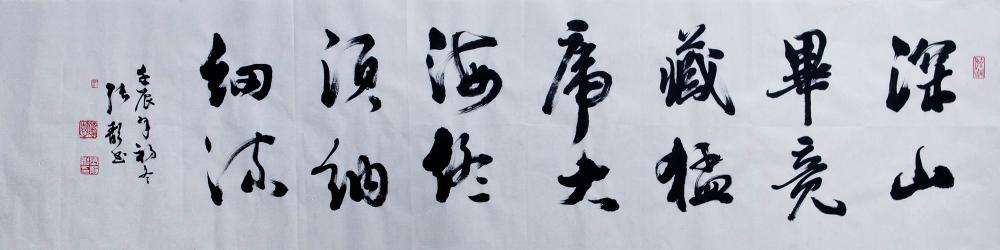 深山
畢竟
藏猛
虎大
海終
須納
細流
壬辰年初冬